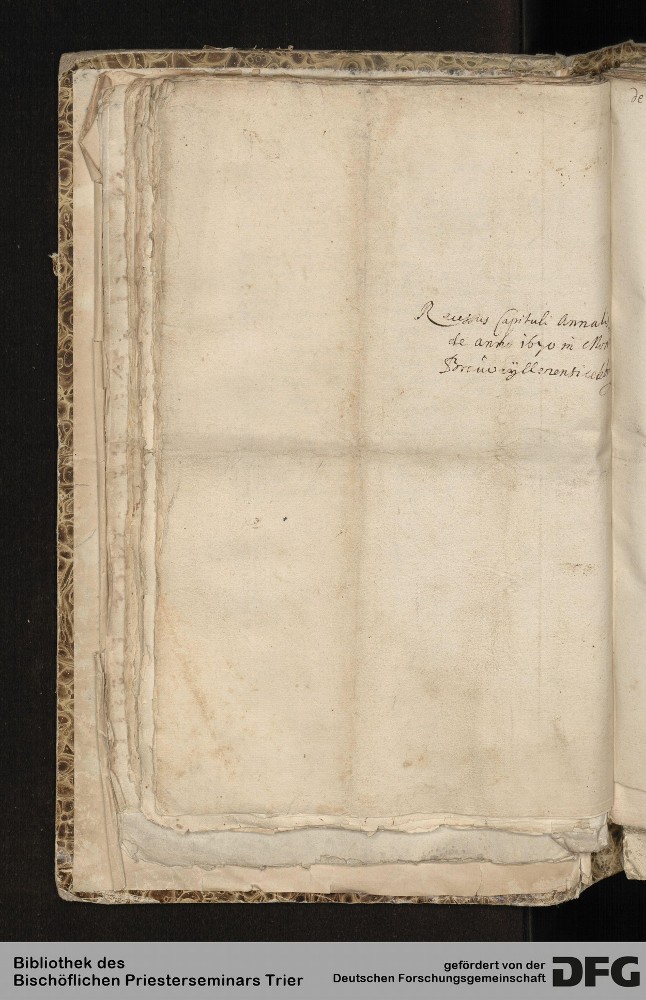 de
Recessus Capituli Annal
de anno 1670 in Mon
Brauwyllerensi celeb
Bibliothek des
Bischöflichen Priesterseminars Trier
gefördert von der
Deutschen Forschungsgemeinschaft
DFG